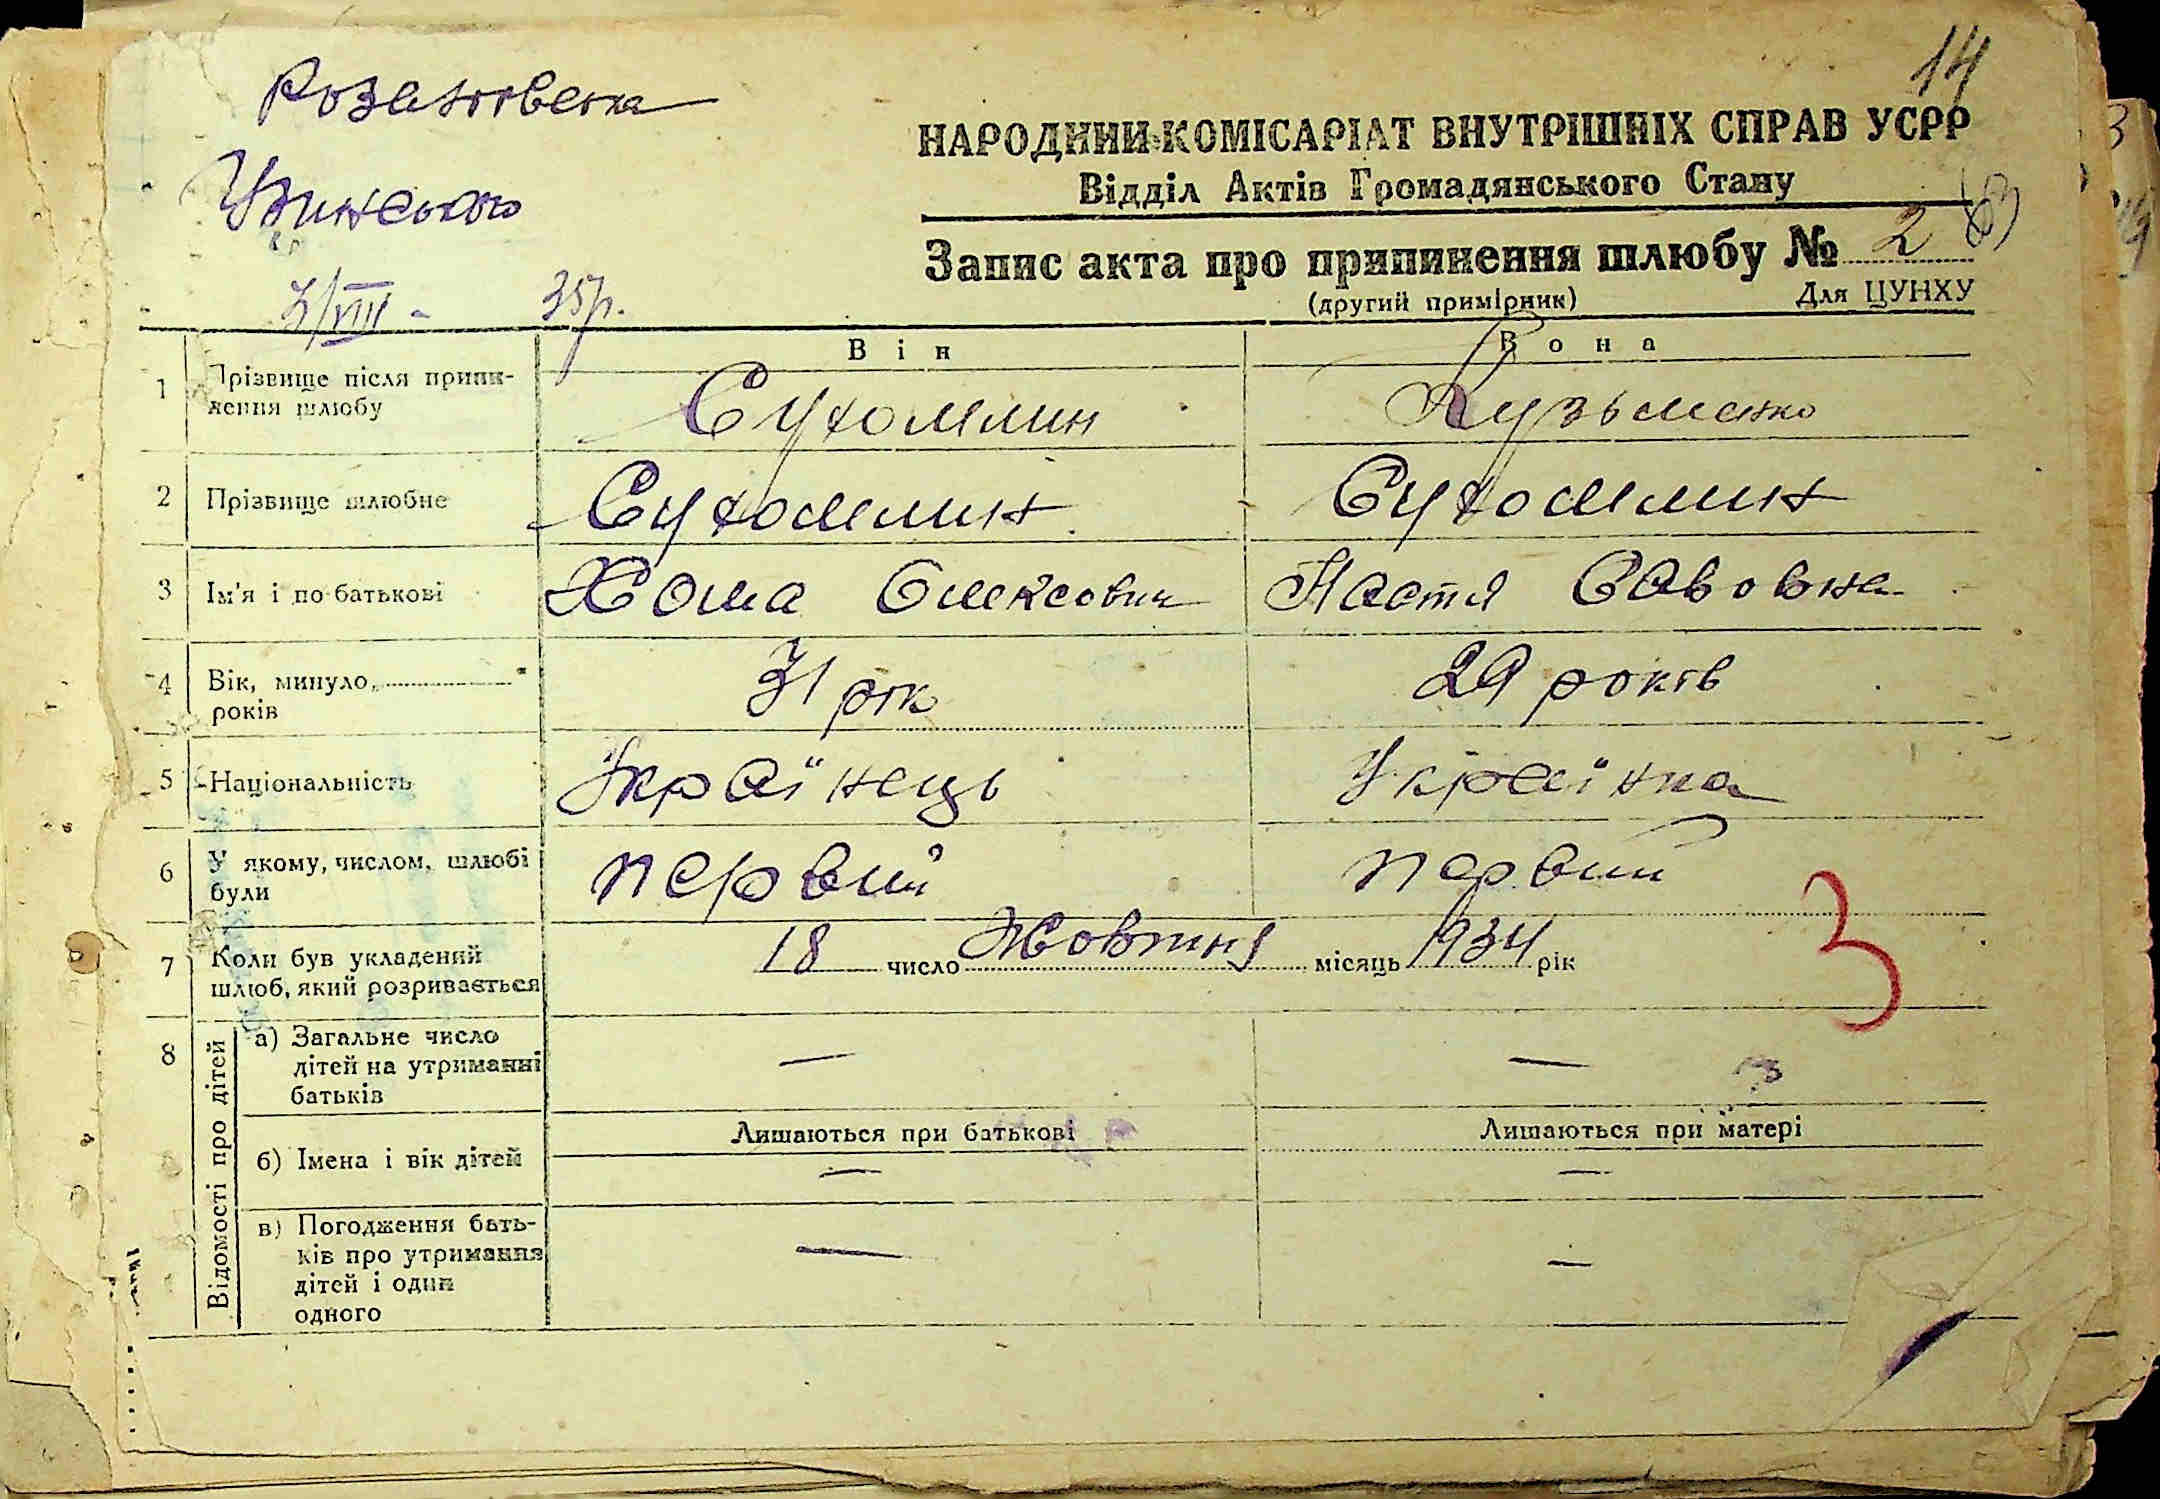 14
Розалтовська
НАРОДНИЙ КОМІСАРІАТ ВНУТРІШНІХ СПРАВ УСРР
Відділ Актів Громадянського Стану
Запис акта про припинення шлюбу № 2
(другий примірник) Для ЦУНХУ
3/VIII - 35р.
Він Вона
1 Прізвище після припинення шлюбу Сухомлин Кузьменко
2 Прізвище шлюбне Сухомлин Сухомлин
3 Ім'я і по батькові Хома Олексович Настя Савовна
4 Вік, минуло
років 31 рік 29 років
5 Національність Українець Українка
6 У якому, числом, шлюбі
були первий первий
7 Коли був укладений
шлюб, який розривається 18 число Жовтня місяць 1934 рік
3
8 Відомості про дітей
а) Загальне число
дітей на утриманні
батьків — —
Лишаються при батькові Лишаються при матері
б) Імена і вік дітей — —
в) Погодження бать-
ків про утримання
дітей і один
одного — —